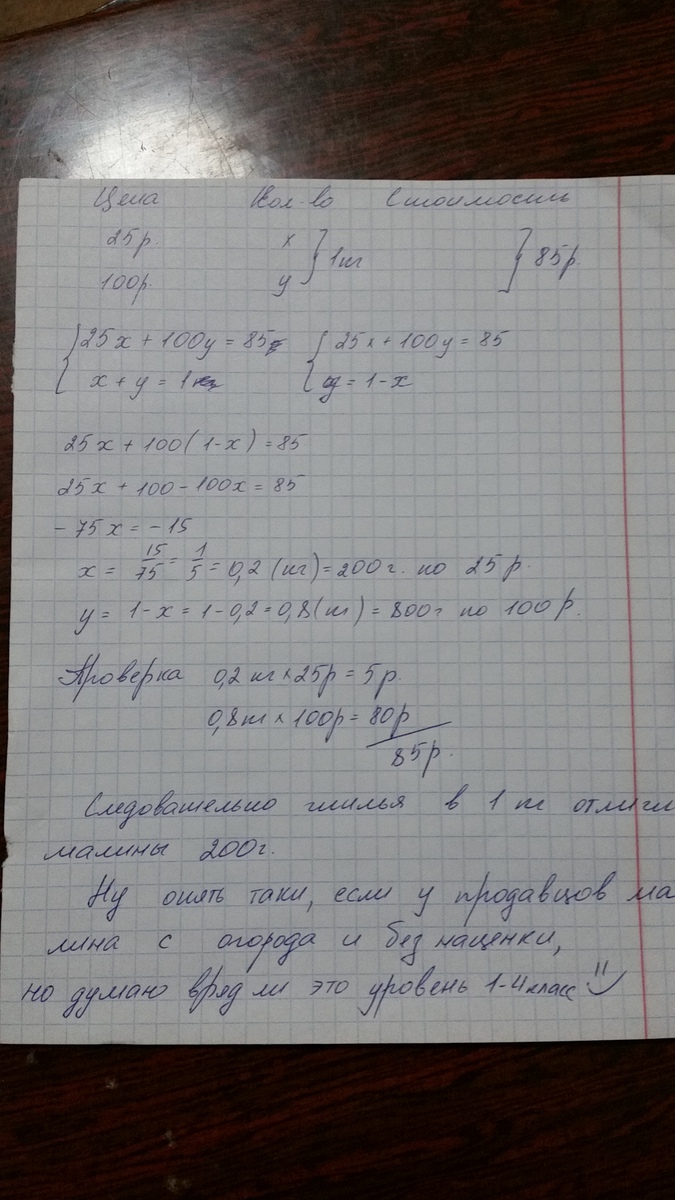 Цена Кол-во Стоимость
25р. x } 1кг } 85р.
100р. y
{ 25x + 100y = 85 { 25x + 100y = 85
x + y = 1 y = 1 - x
25x + 100(1-x) = 85
25x + 100 - 100x = 85
- 75x = - 15
x = 15/75 = 1/5 = 0,2 (кг) = 200г. по 25р.
y = 1 - x = 1 - 0,2 = 0,8(кг) = 800г по 100р.
Проверка 0,2 кг × 25р = 5р.
0,8кг × 100р = 80р
85р.
Следовательно гнилья в 1 кг
малины 200г.
Ну опять таки, если у продавцов ма
лина с огорода и без наценки,
но думаю вряд ли это уровень 1-4класс